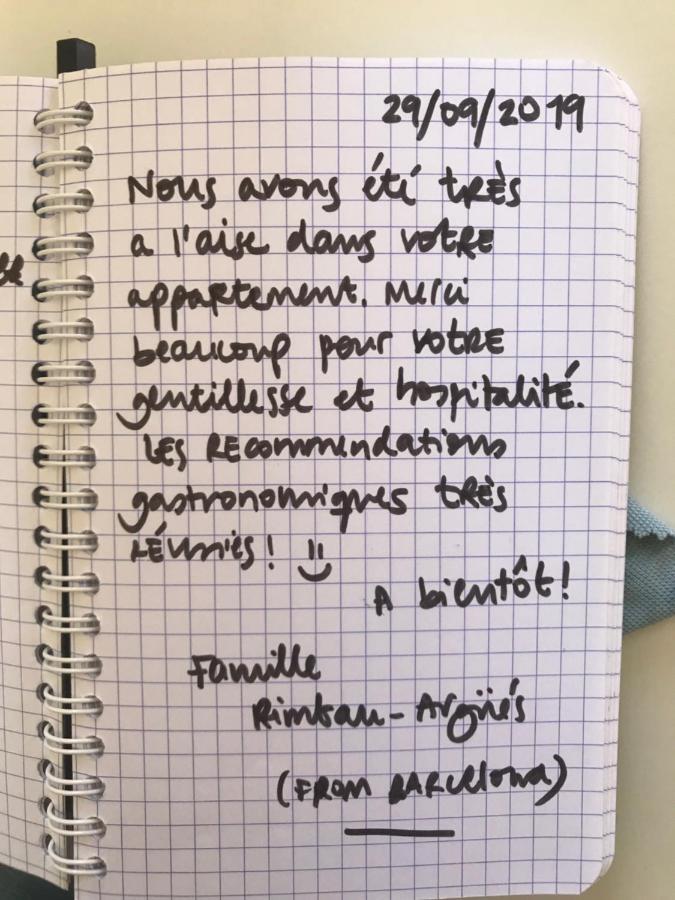 29/09/2019
Nous avons été très
a l'aise dans votre
appartement. Merci
beaucoup pour votre
gentillesse et hospitalité.
Les recommendations
gastronomiques très
réunies! :)
A bientôt!
Famille
Rimbau-Argüés
(FROM BARCELONA)